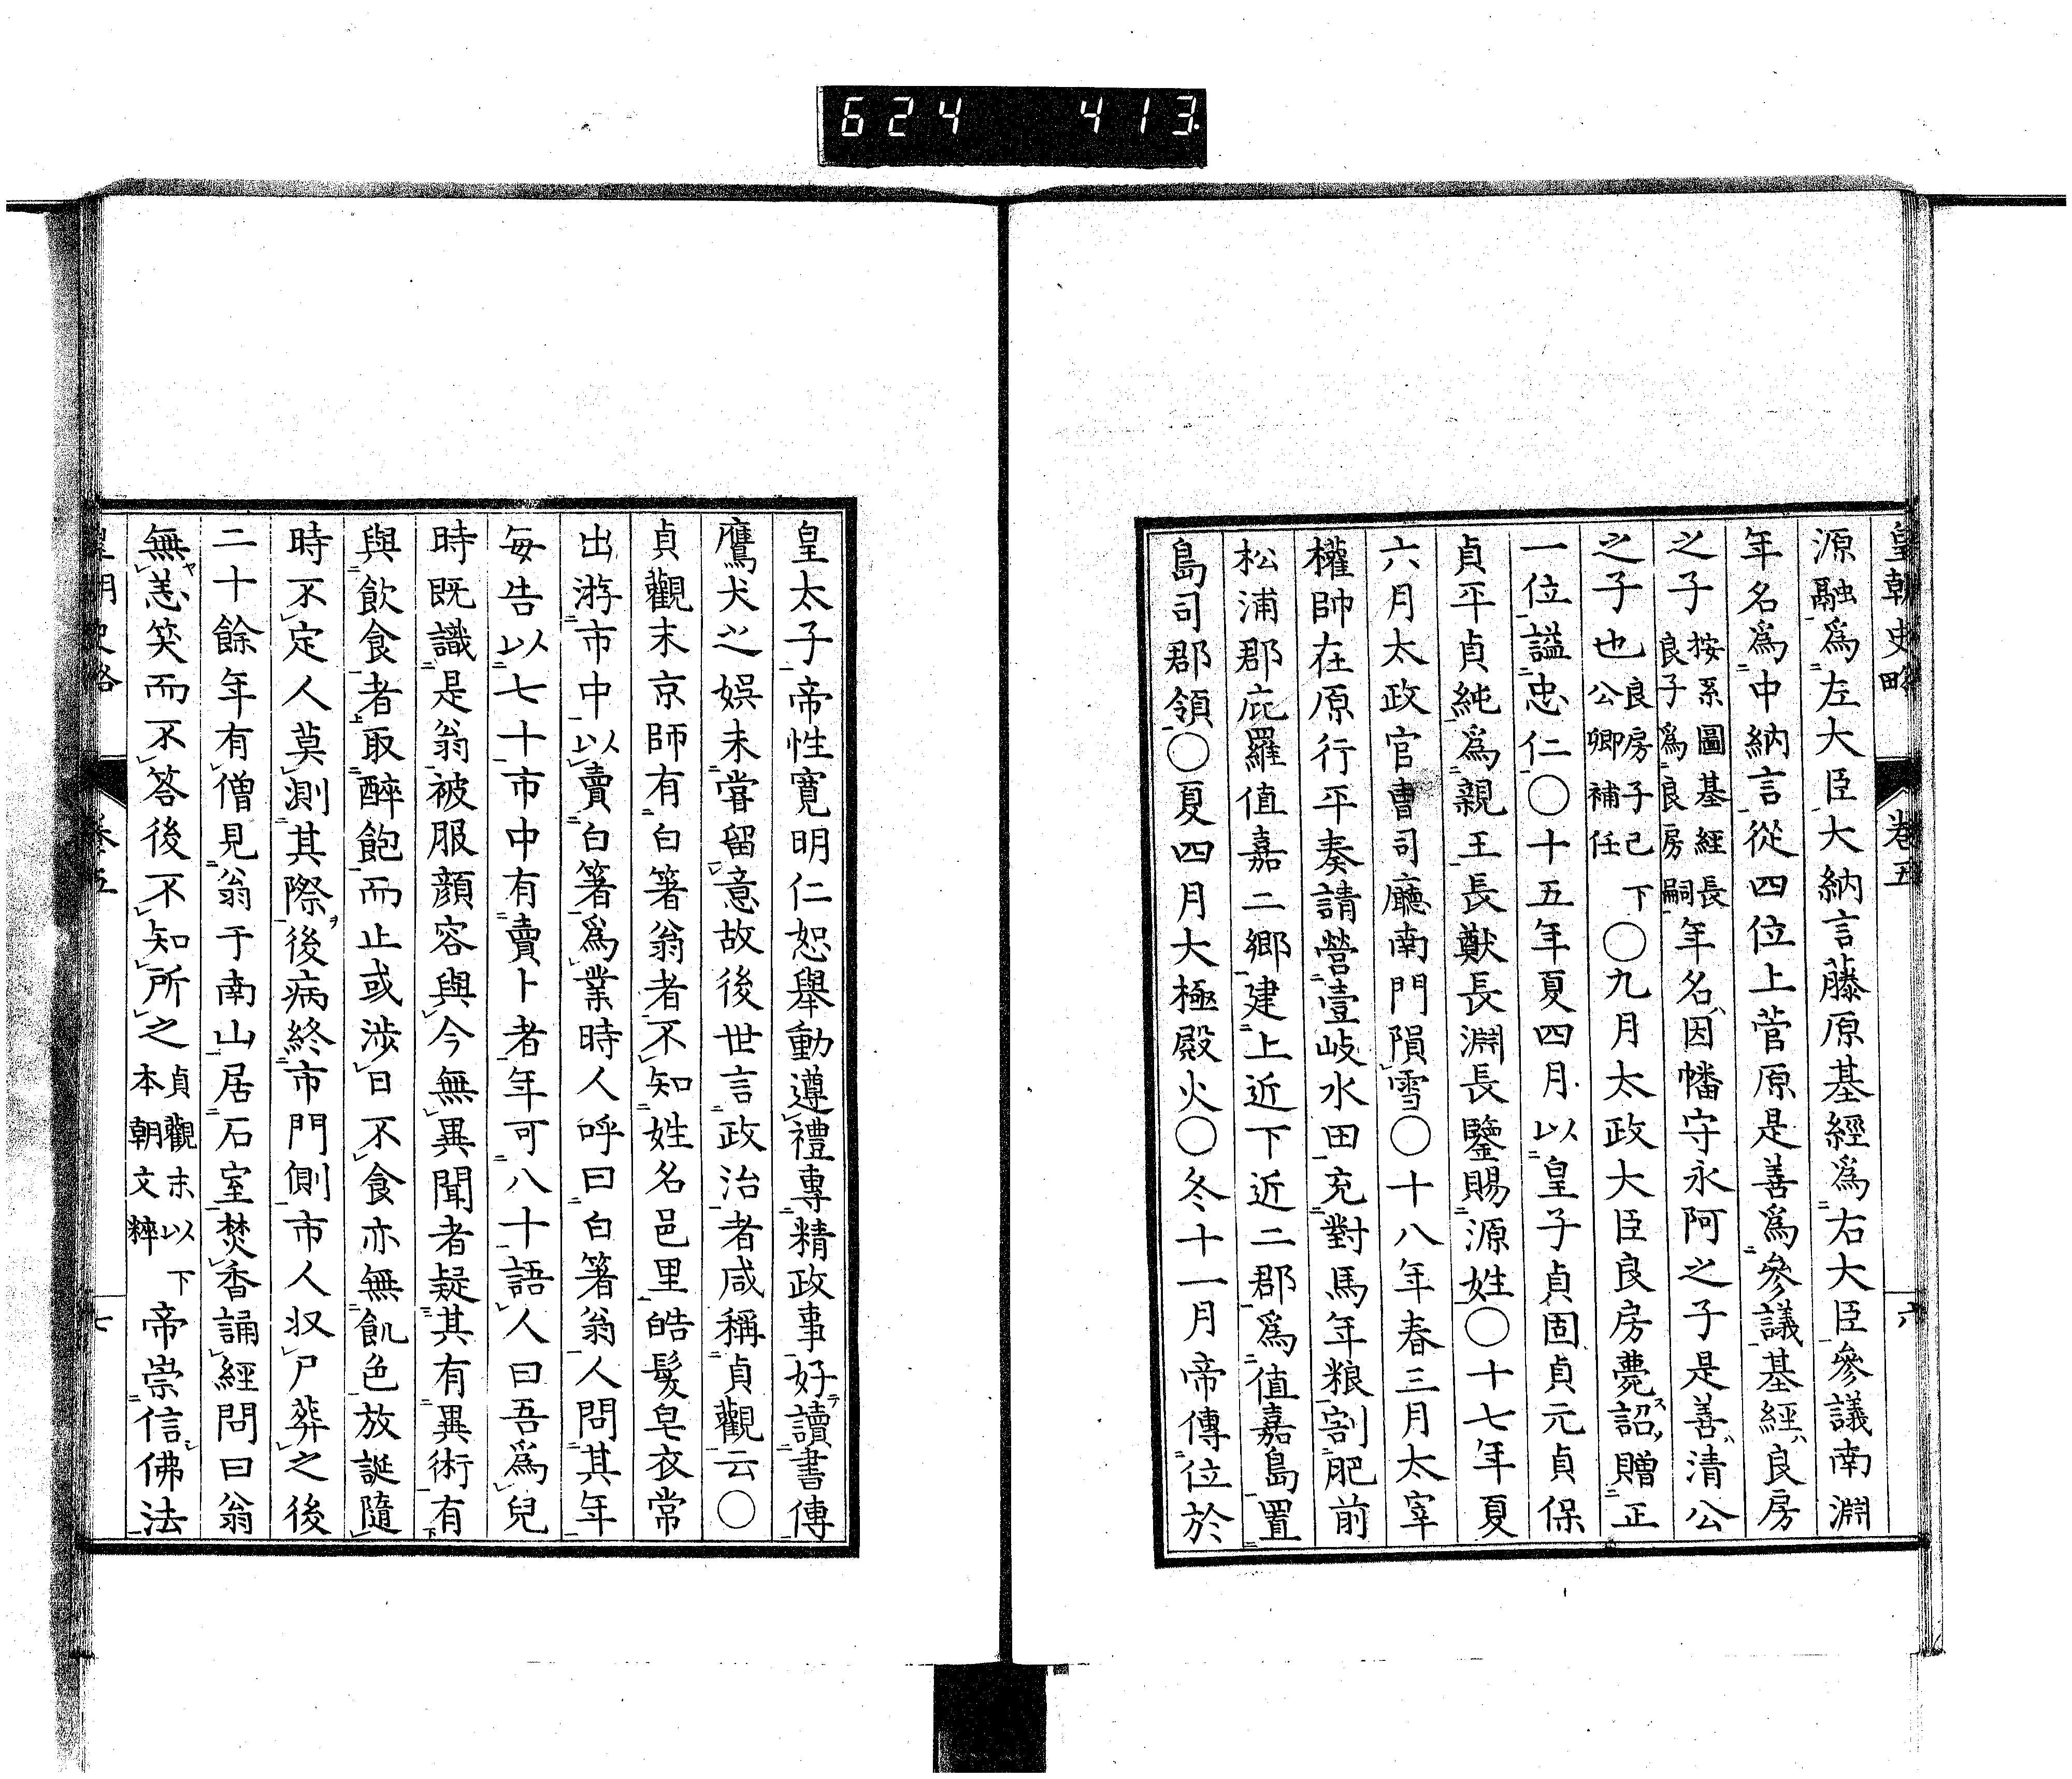 624 413
皇朝史略 卷五 六
源融爲左大臣大納言藤原基經爲右大臣參議南淵
年名爲中納言從四位上菅原是善爲參議基經良房
之子按系圖基經長良子爲良房嗣年名因幡守永河之子是善清公
之子也良房子己下公卿補任〇九月太政大臣良房薨詔贈正
一位謚忠仁〇十五年夏四月以皇子貞固貞元貞保
貞平貞純爲親王長猷長淵長鑒賜源姓〇十七年夏
六月太政官曹司廳南門隕雪〇十八年春三月太宰
權帥在原行平奏請營壹岐水田充對馬年粮割肥前
松浦郡庇羅值嘉二鄉建上近下近二郡爲值嘉島置
島司郡領〇夏四月大極殿火〇冬十一月帝傳位於
皇太子帝性寬明仁恕舉動遵禮專精政事好讀書傳
鷹犬之娯未甞留意故後世言政治者咸稱貞觀云〇
貞觀末京師有白箸翁者不知姓名邑里皓髮皂衣常
出游市中以賣白箸爲業時人呼曰白箸翁人問其年
每告以七十市中有賣卜者年可八十語人曰吾爲兒
時既識是翁被服顏容與今無異聞者疑其有異術有
與飲食者取醉飽而止或涉日不食亦無飢色放誕隨
時不定人莫測其際後病終市門側市人収尸葬之後
二十餘年有僧見翁于南山居石室焚香誦經問曰翁
無恙笑而不答後不知所之貞觀末以下本朝文粹帝崇信佛法
皇朝史略 卷五 七